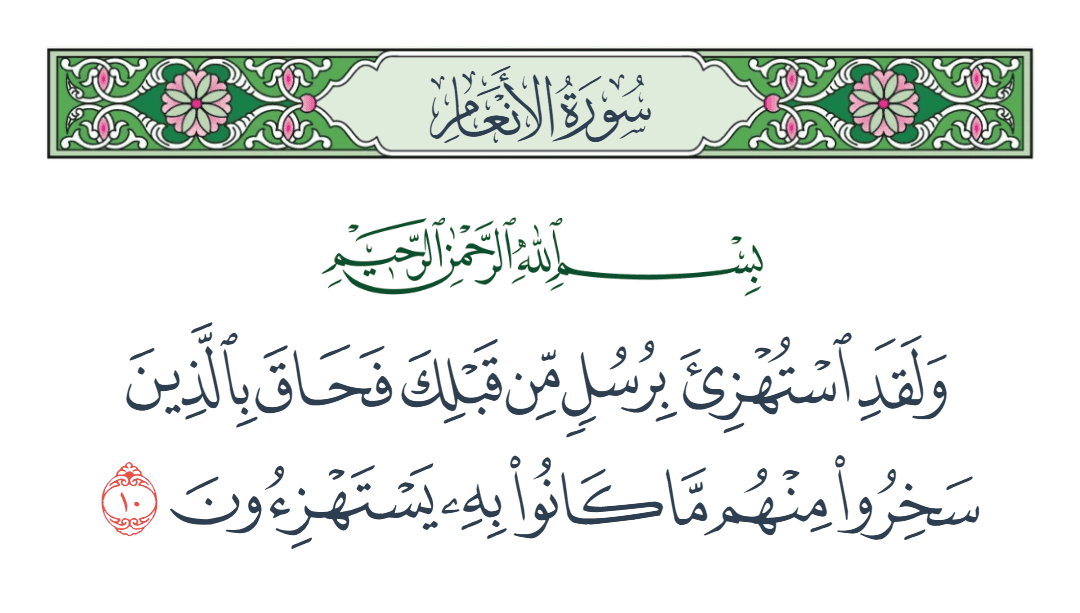 سُورَةُ الأَنْعَامِ
بِسْمِ ٱللَّهِ ٱلرَّحْمَٰنِ ٱلرَّحِيمِ
وَلَقَدِ ٱسْتُهْزِئَ بِرُسُلٍ مِّن قَبْلِكَ فَحَاقَ بِٱلَّذِينَ
سَخِرُوا۟ مِنْهُم مَّا كَانُوا۟ بِهِۦ يَسْتَهْزِءُونَ ١٠